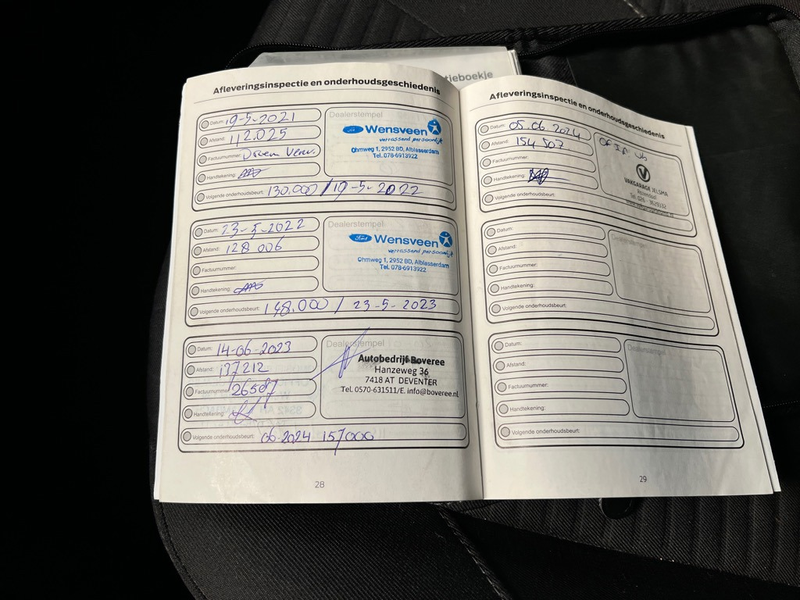 tieboekje
Afleveringsinspectie en onderhoudsgeschiedenis
Datum: 19-5-2021
Afstand: 112.025
Factuurnummer:
Handtekening:
Volgende onderhoudsbeurt: 130.000 / 19-5-2022
Dealerstempel
Ford Wensveen
verrassend persoonlijk
Ohmweg 1, 2952 BD, Alblasserdam
Tel. 078-6913922
Datum: 23-5-2022
Afstand: 128 006
Factuurnummer:
Handtekening:
Volgende onderhoudsbeurt: 148.000 / 23-5-2023
Dealerstempel
Ford Wensveen
verrassend persoonlijk
Ohmweg 1, 2952 BD, Alblasserdam
Tel. 078-6913922
Datum: 14-06-2023
Afstand: 137212
Factuurnummer: 26587
Handtekening:
Volgende onderhoudsbeurt: 06 2024 157000
Dealerstempel
Autobedrijf Boveree
Hanzeweg 36
7418 AT DEVENTER
Tel. 0570-631511/E. info@boveree.nl
28
Afleveringsinspectie en onderhoudsgeschiedenis
Datum: 05.06 2024
Afstand: 154 507
Factuurnummer:
Handtekening:
Volgende onderhoudsbeurt:
VAKGARAGE JELSMA
Datum:
Afstand:
Factuurnummer:
Handtekening:
Volgende onderhoudsbeurt:
Dealerstempel
Datum:
Afstand:
Factuurnummer:
Handtekening:
Volgende onderhoudsbeurt:
Dealerstempel
29